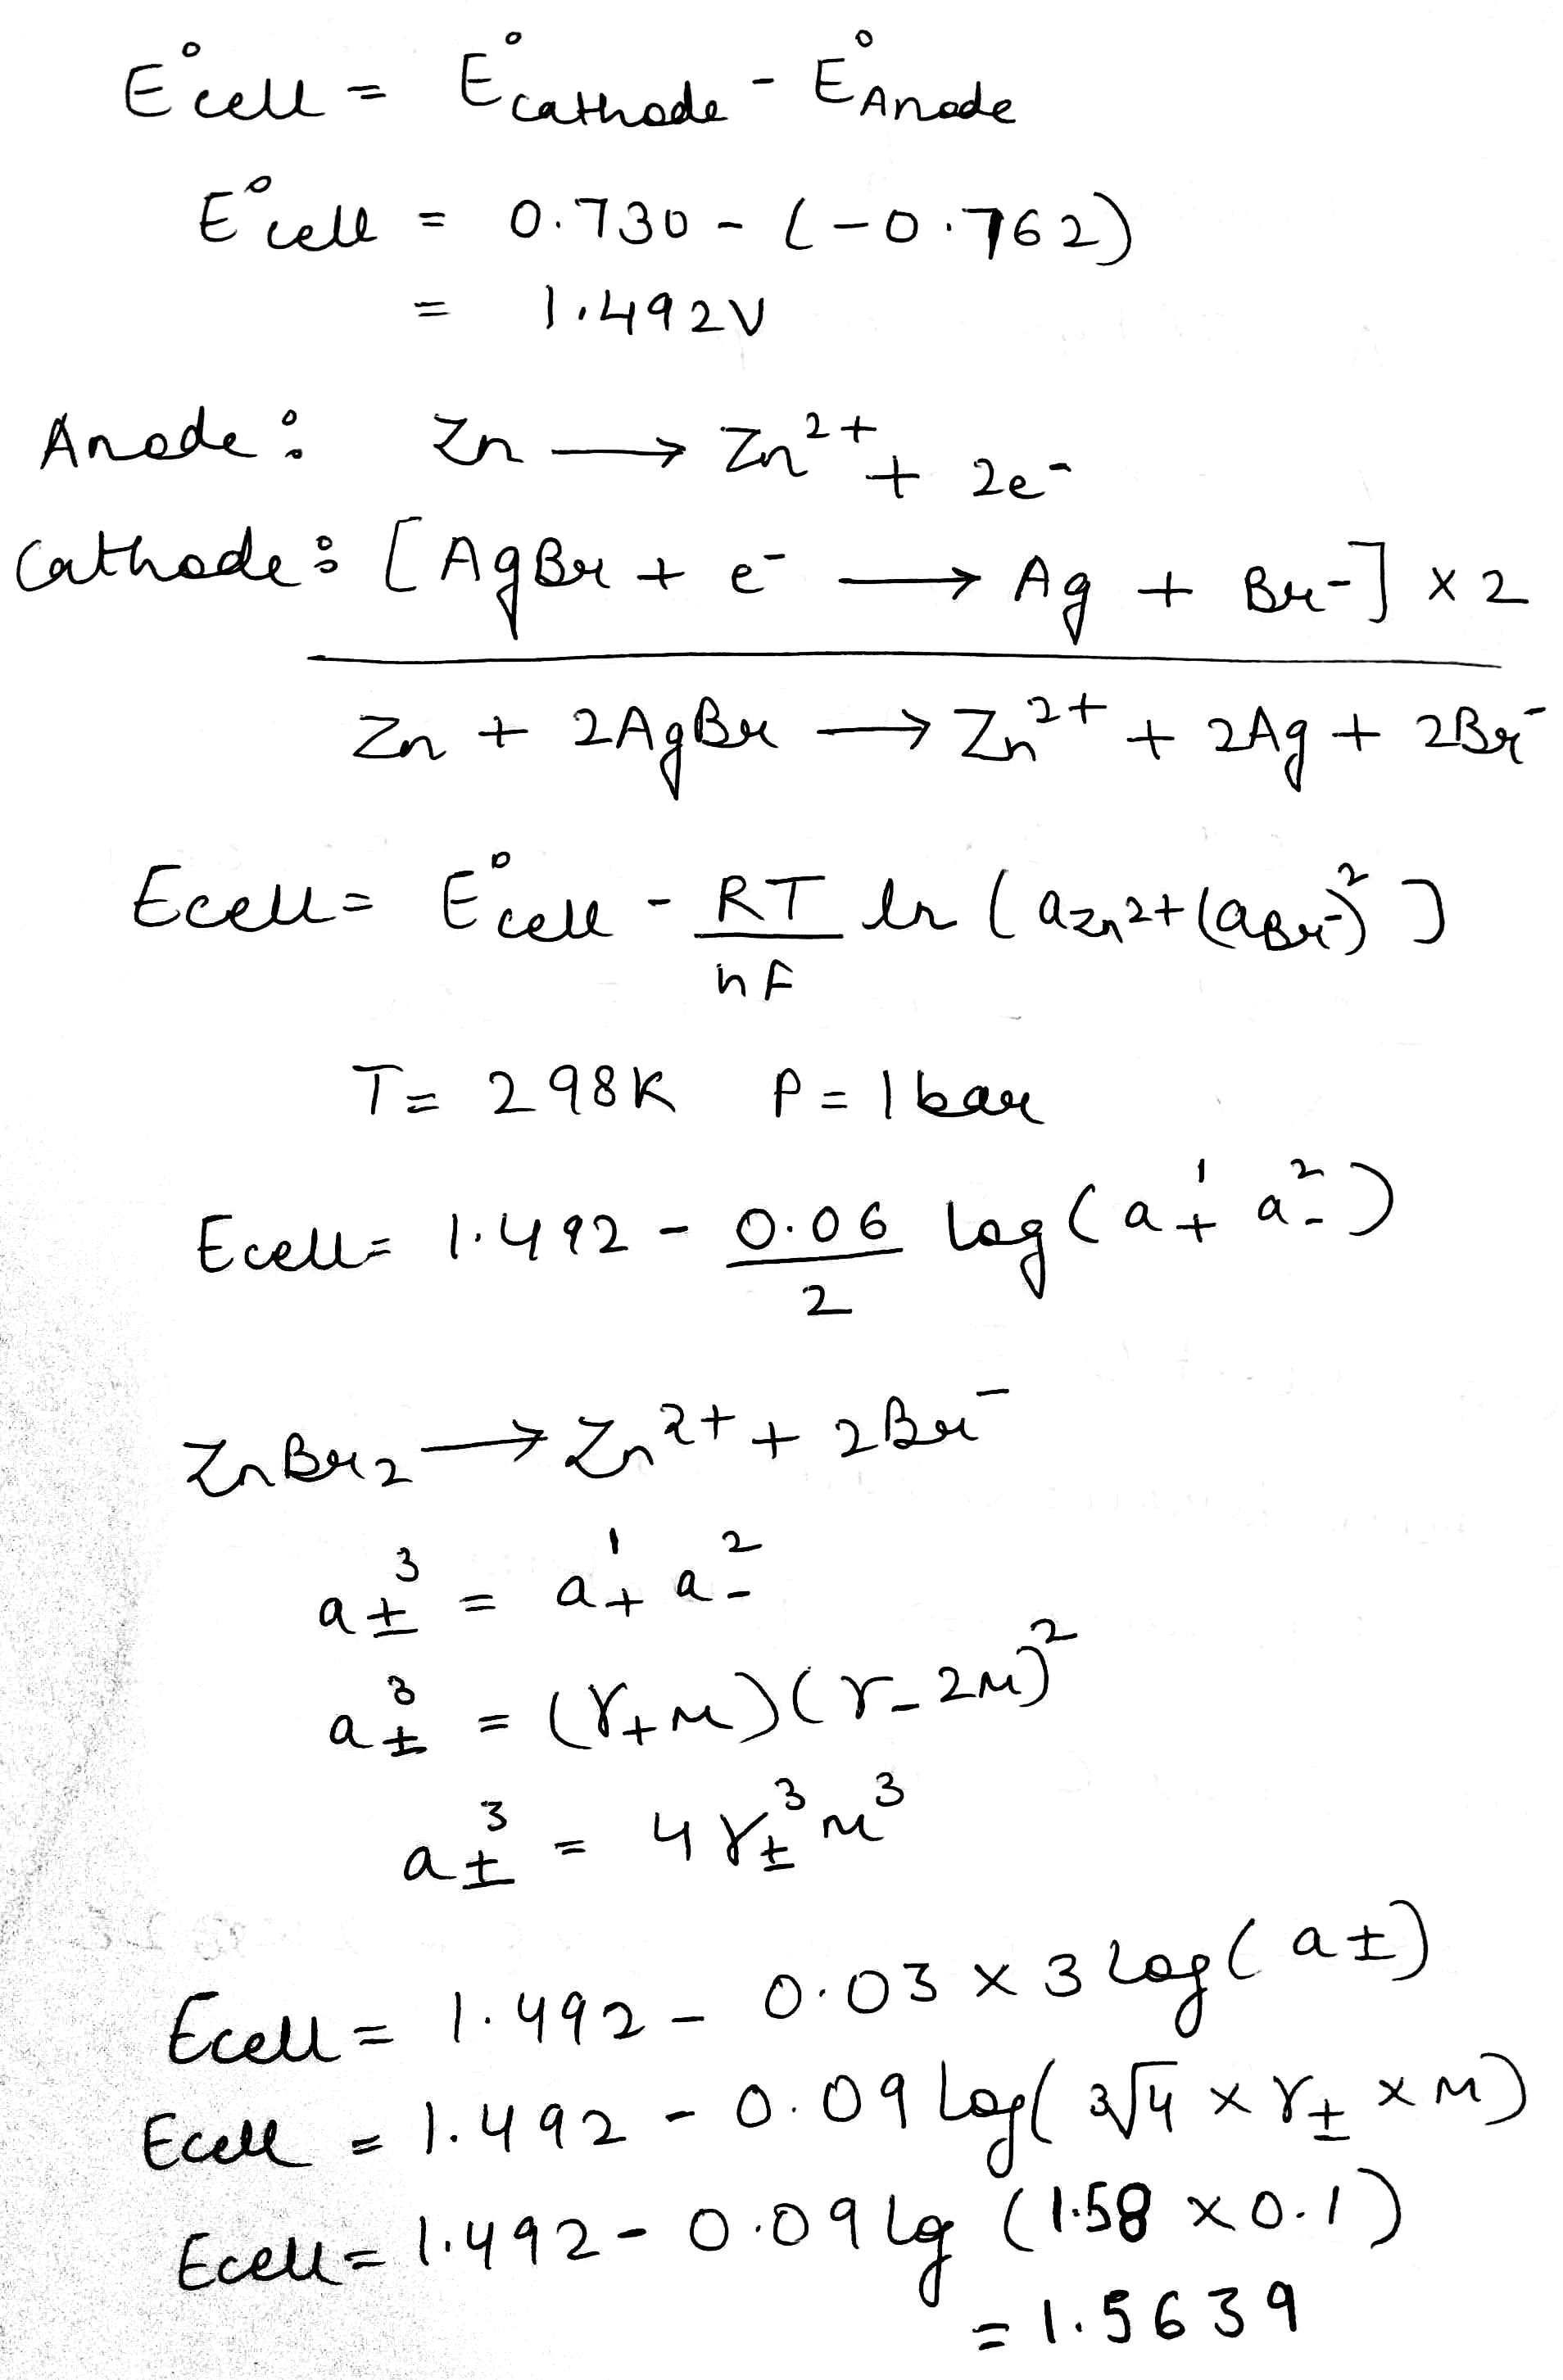 E°cell = E°cathode - E°Anode
E°cell = 0.730 - (-0.762)
= 1.492V
Anode: Zn ⟶ Zn²⁺ + 2e⁻
Cathode: [AgBr + e⁻ ⟶ Ag + Br⁻] × 2
Zn + 2AgBr ⟶ Zn²⁺ + 2Ag + 2Br⁻
Ecell = E°cell - RT/nF ln (aZn²⁺(aBr⁻)²)
T = 298K P = 1 bar
Ecell = 1.492 - 0.06/2 log(a₊¹ a₋²)
ZnBr₂ ⟶ Zn²⁺ + 2Br⁻
a±³ = a₊¹ a₋²
a±³ = (γ₊m)(γ₋2m)²
a±³ = 4γ±³m³
Ecell = 1.492 - 0.03 × 3 log(a±)
Ecell = 1.492 - 0.09 log(³√4 × γ± × m)
Ecell = 1.492 - 0.09 lg (1.58 × 0.1)
= 1.5639